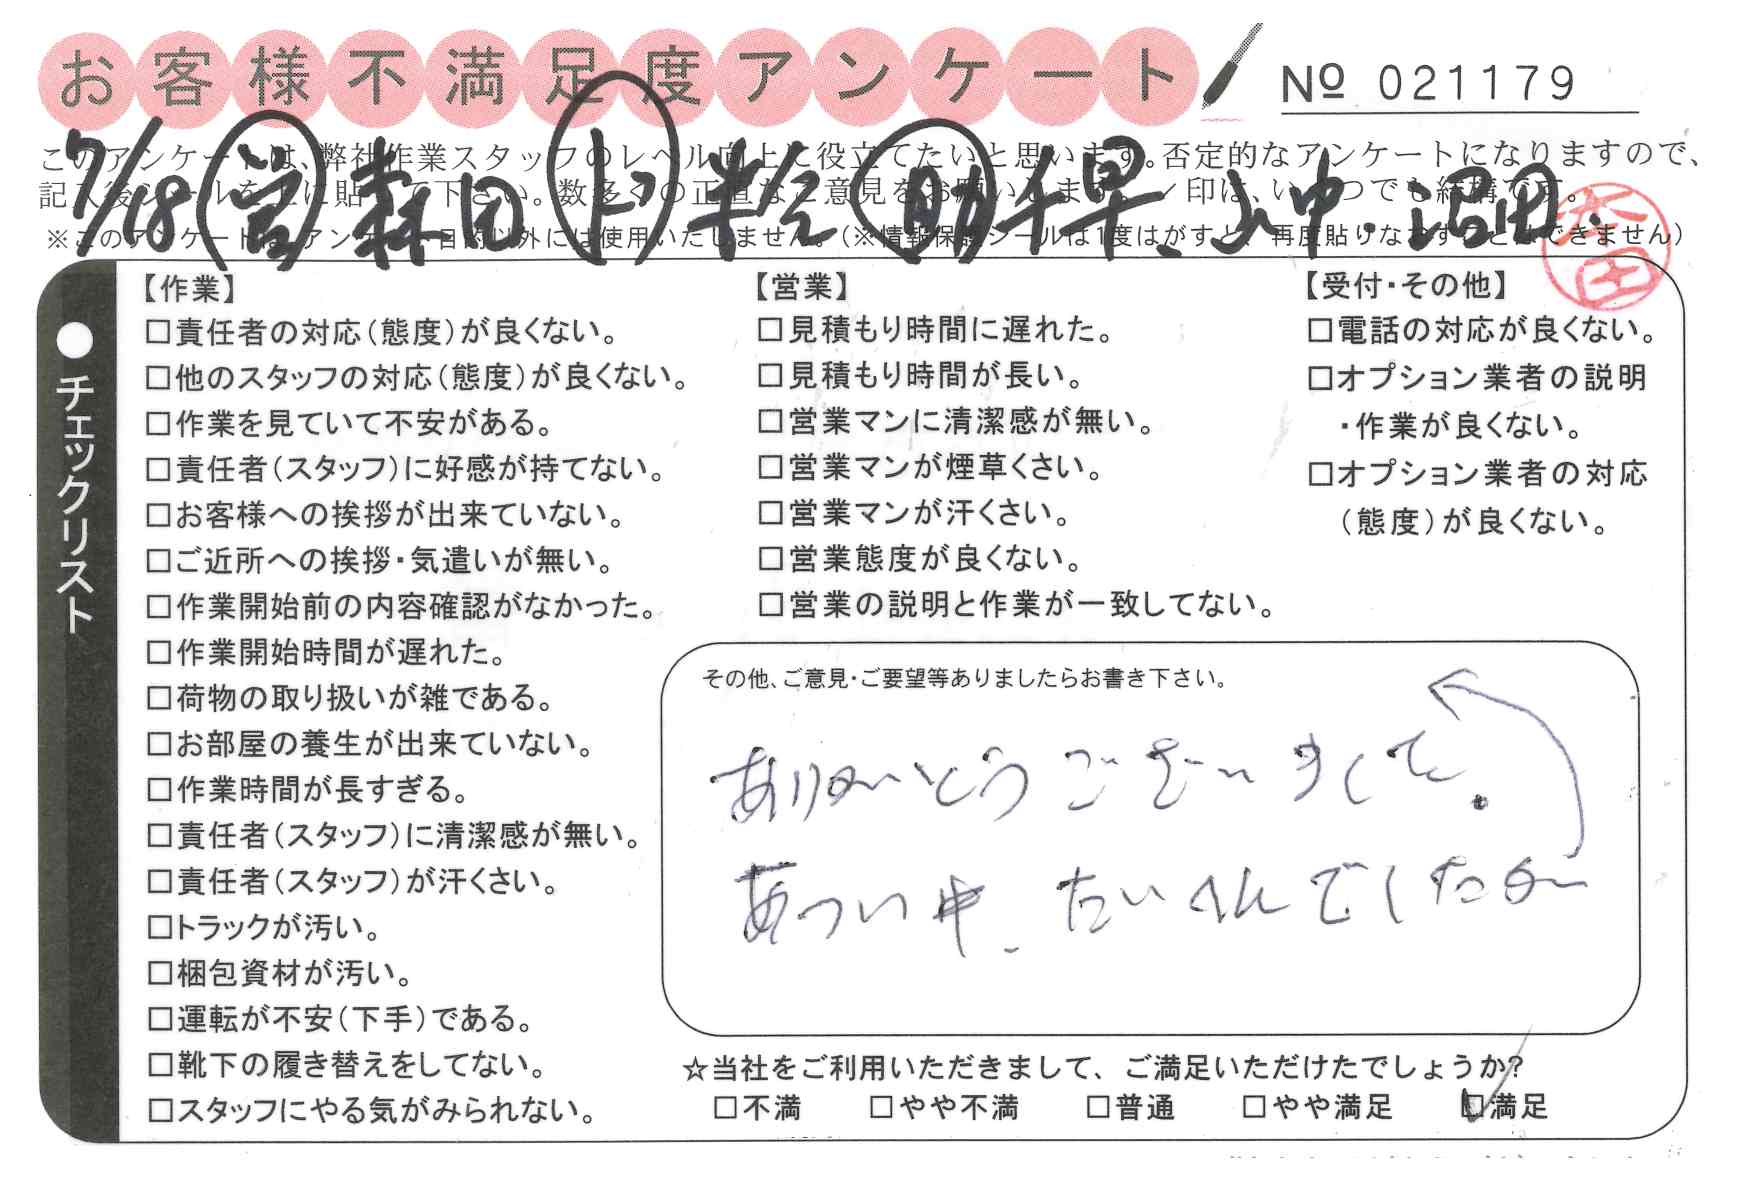 お客様不満足度アンケート
№ 021179
このアンケートは、弊社作業スタッフのレベル向上に役立てたいと思います。否定的なアンケートになりますので、
記入後シールを上に貼って下さい。数多くの正直なご意見をお願いします。✓印は、いくつでも結構です。
※このアンケートは、アンケート目的以外には使用いたしません。(※情報保護シールは1度はがすと、再度貼りなおすことはできません)
7/18 営 森田
助 千早、山中・沼田.
太田
チェックリスト
【作業】
□責任者の対応(態度)が良くない。
□他のスタッフの対応(態度)が良くない。
□作業を見ていて不安がある。
□責任者(スタッフ)に好感が持てない。
□お客様への挨拶が出来ていない。
□ご近所への挨拶・気遣いが無い。
□作業開始前の内容確認がなかった。
□作業開始時間が遅れた。
□荷物の取り扱いが雑である。
□お部屋の養生が出来ていない。
□作業時間が長すぎる。
□責任者(スタッフ)に清潔感が無い。
□責任者(スタッフ)が汗くさい。
□トラックが汚い。
□梱包資材が汚い。
□運転が不安(下手)である。
□靴下の履き替えをしてない。
□スタッフにやる気がみられない。
【営業】
□見積もり時間に遅れた。
□見積もり時間が長い。
□営業マンに清潔感が無い。
□営業マンが煙草くさい。
□営業マンが汗くさい。
□営業態度が良くない。
□営業の説明と作業が一致してない。
【受付・その他】
□電話の対応が良くない。
□オプション業者の説明
・作業が良くない。
□オプション業者の対応
(態度)が良くない。
その他、ご意見・ご要望等ありましたらお書き下さい。
ありがとうございました。
あつい中、たいへんでしたが
☆当社をご利用いただきまして、ご満足いただけたでしょうか?
□不満 □やや不満 □普通 □やや満足 ☑満足